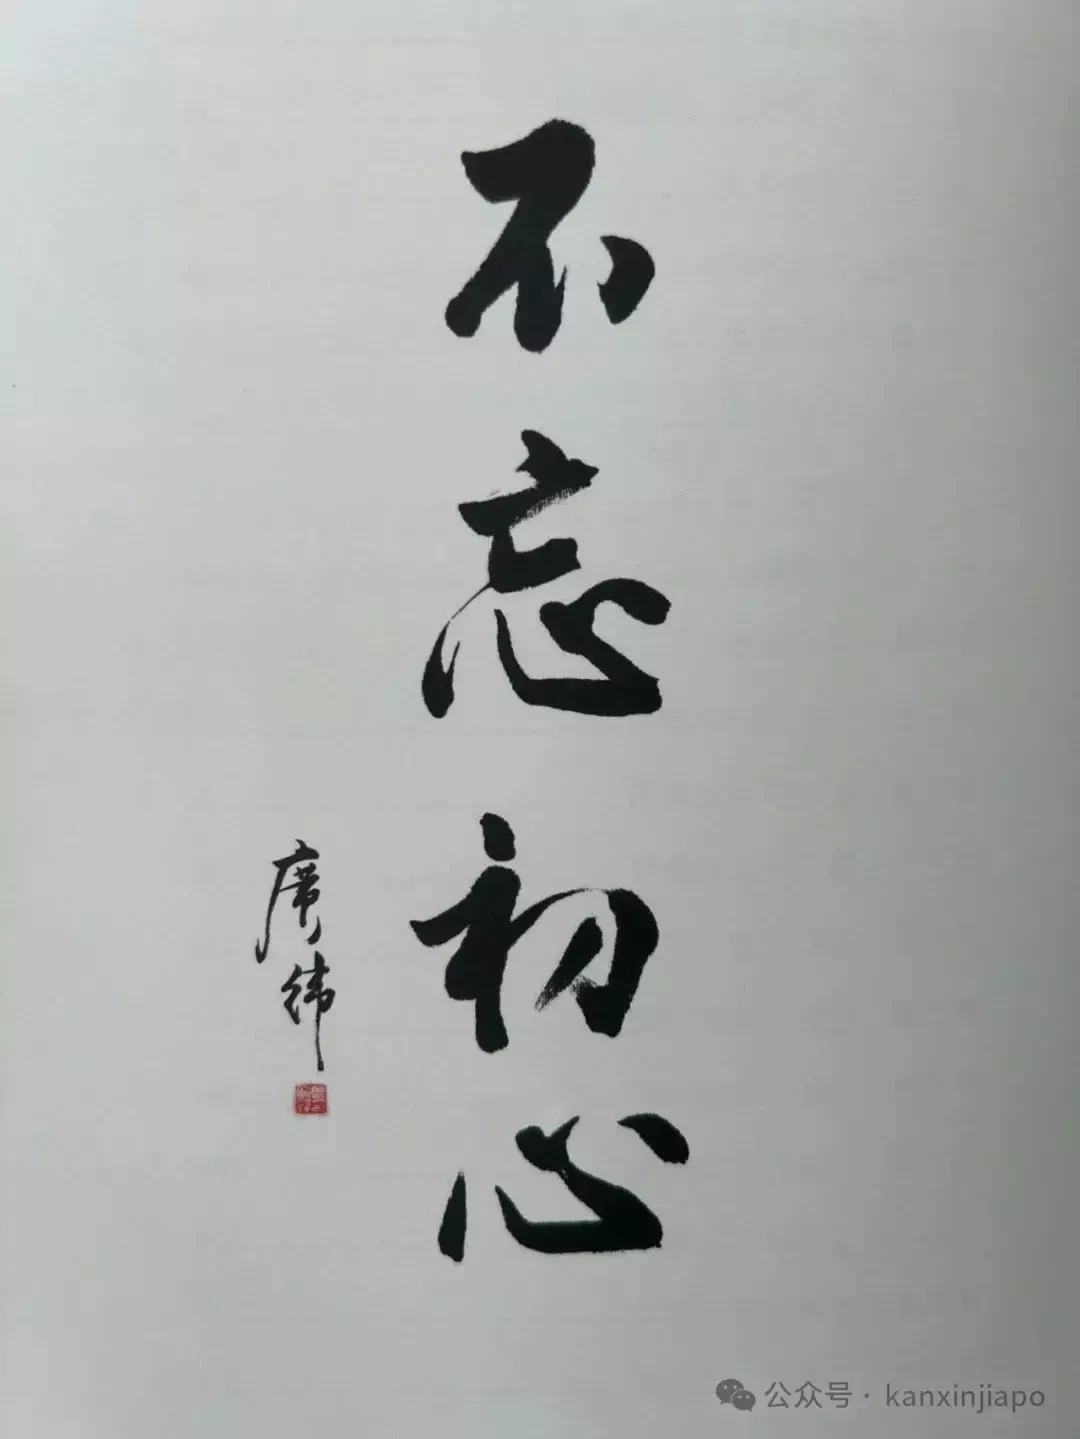 不忘初心
席纬
公众号·kanxinjiapo